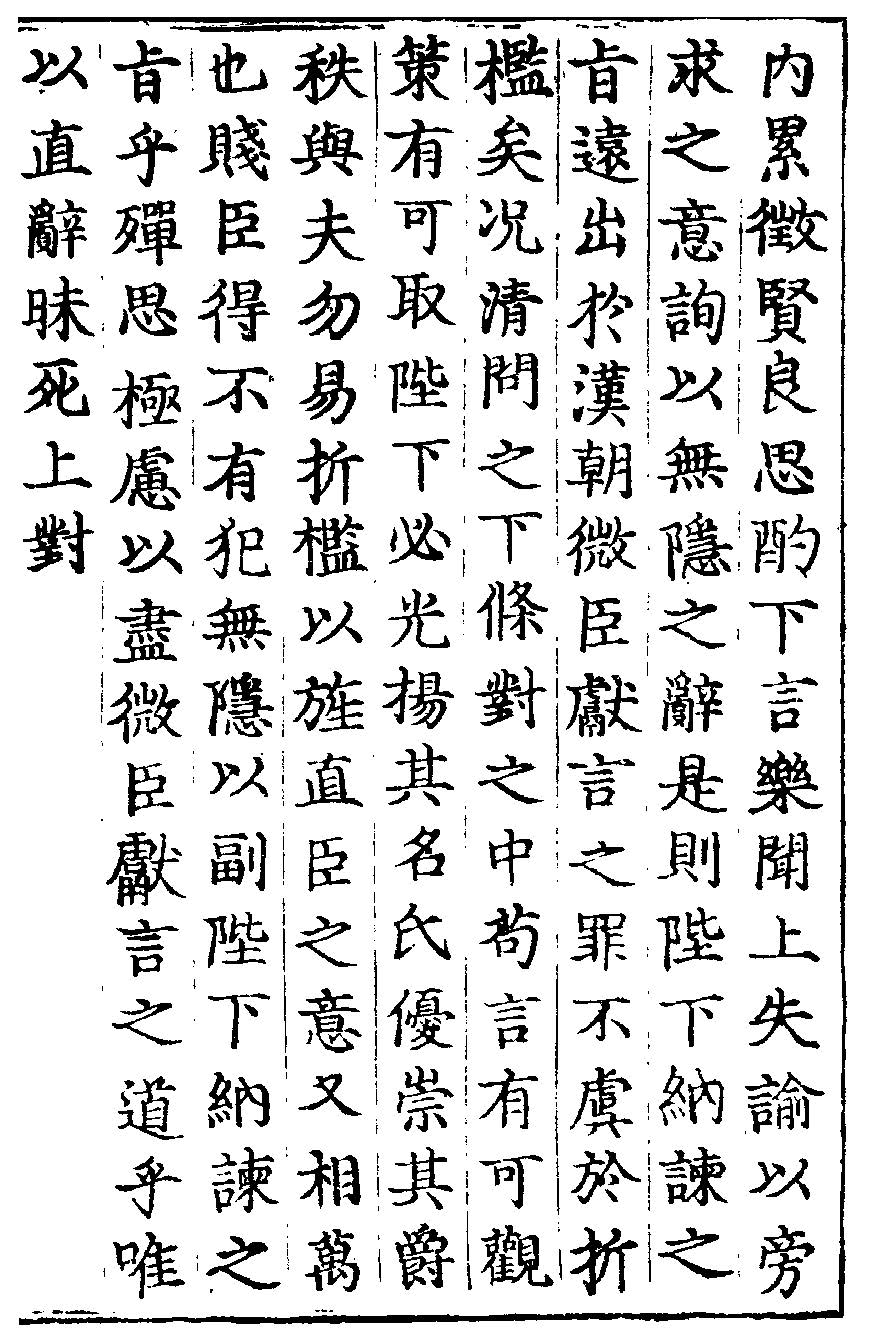 內累徵賢良思酌下言樂聞上失諭以旁
求之意詢以無隱之辭是則陛下納諫之
旨遠出於漢朝微臣獻言之罪不虞於折
檻矣况清問之下條對之中苟言有可觀
策有可取陛下必光揚其名氏優崇其爵
秩與夫勿易折檻以旌直臣之意又相萬
也賤臣得不有犯無隱以副陛下納諫之
旨乎殫思極慮以盡微臣獻言之道乎唯
以直辭昧死上對